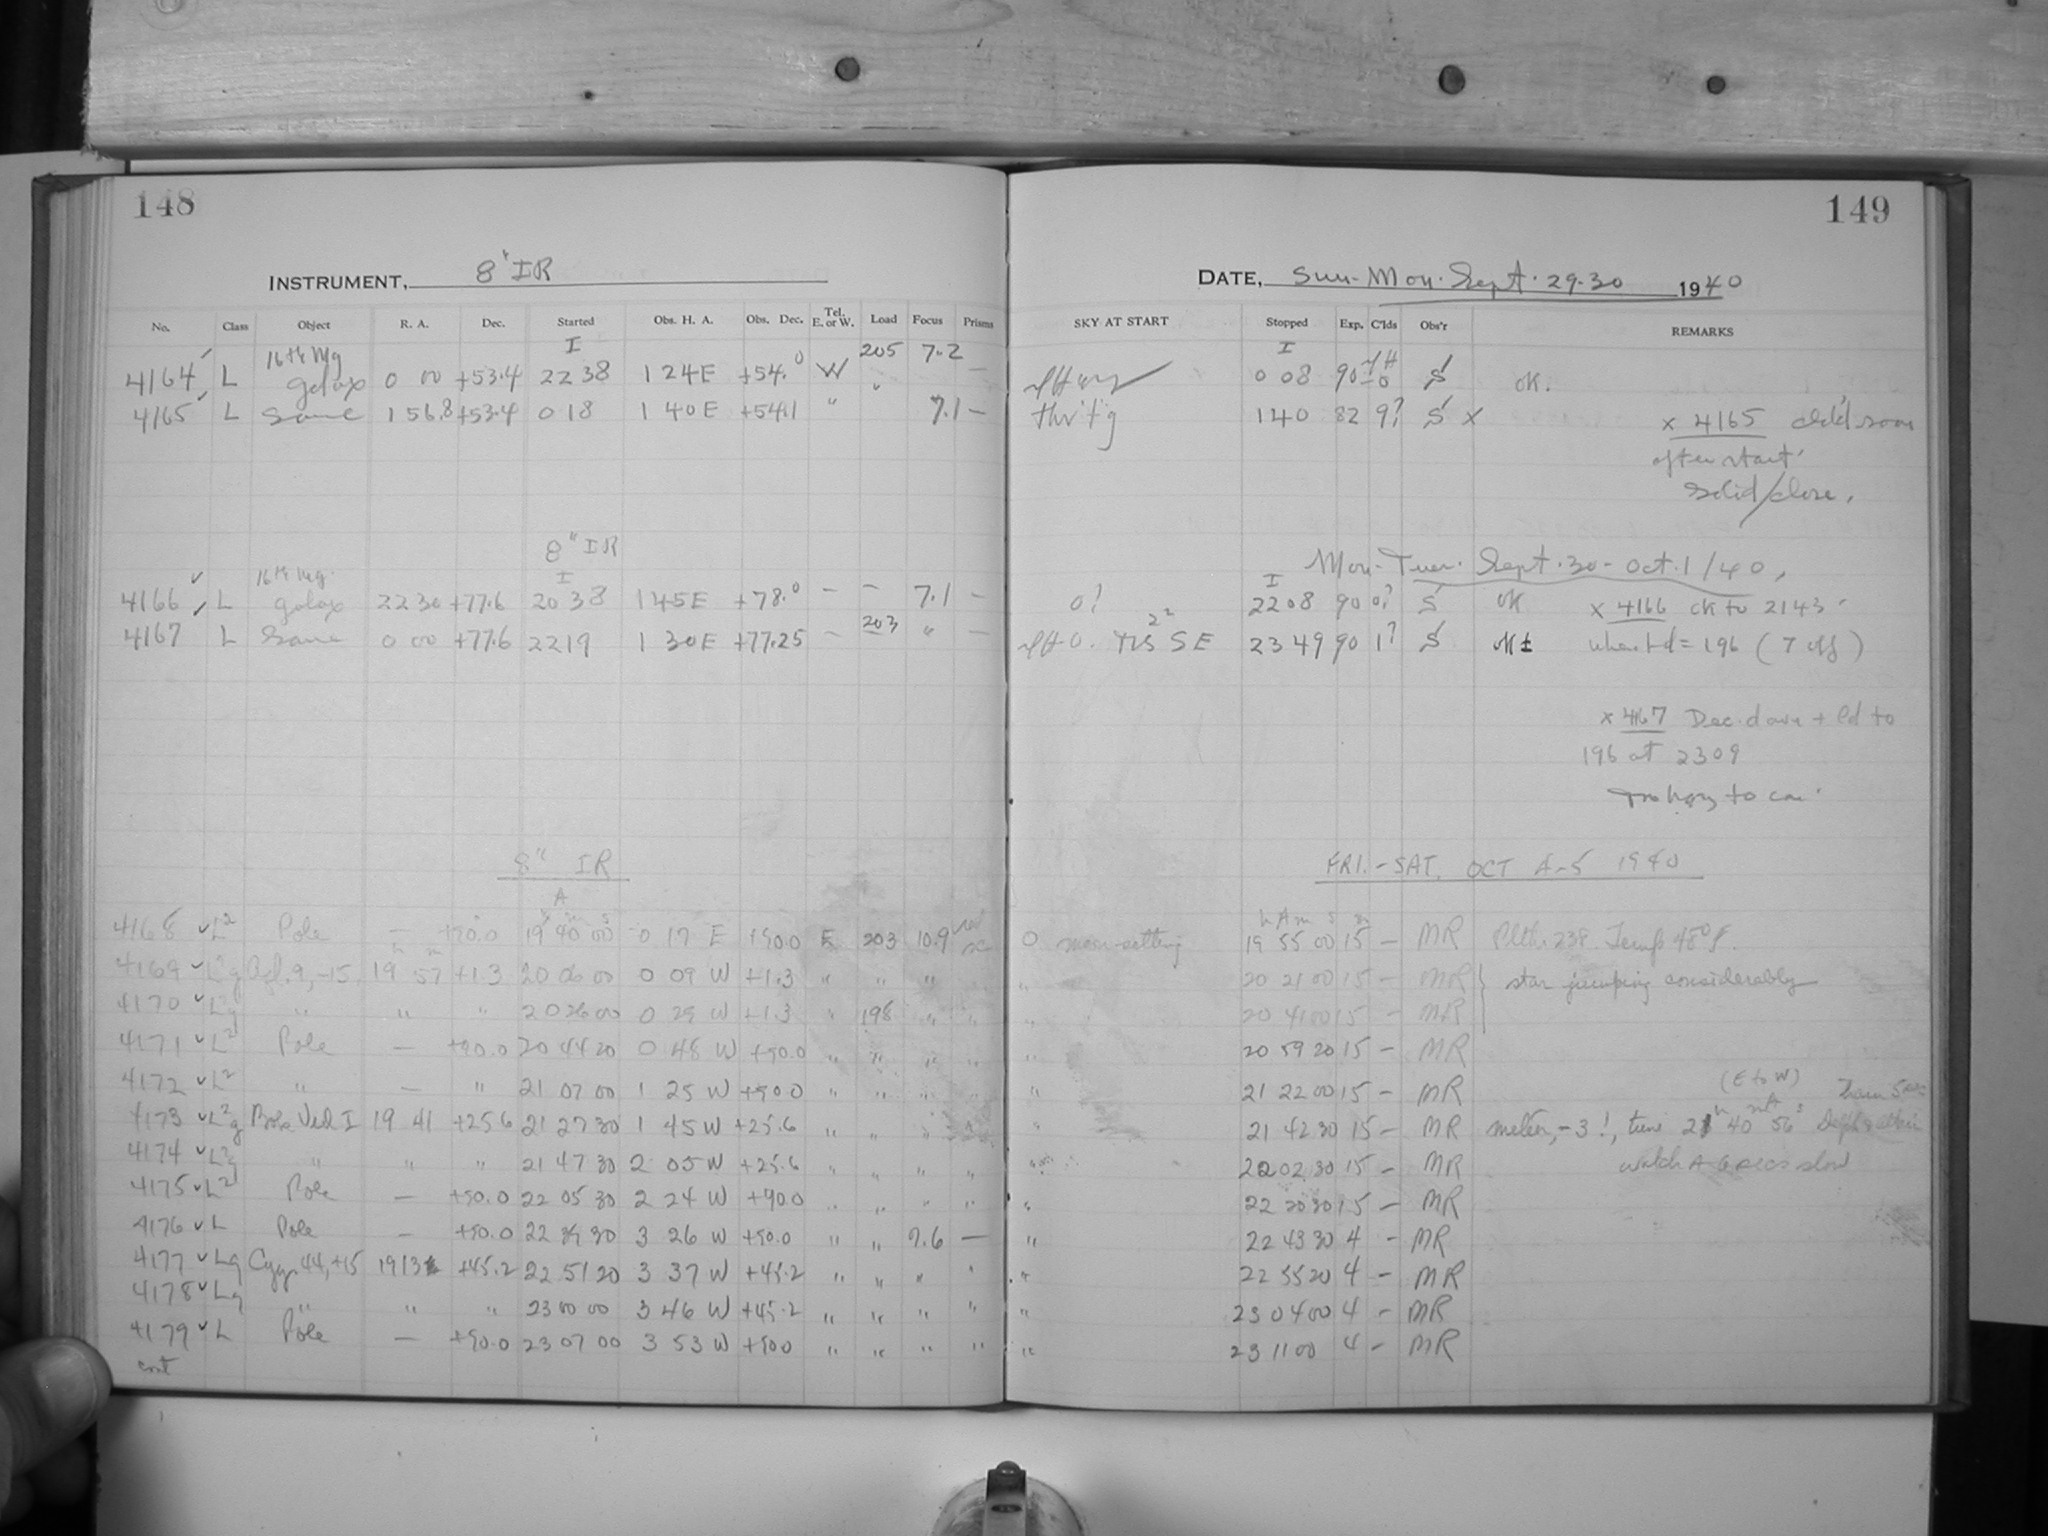 148
149
INSTRUMENT, 8" IR
DATE, Sun-Mon. Sept. 29-30 1940
No. Class Object R. A. Dec. Started Obs. H. A. Obs. Dec. Tel. E. or W. Load Focus Prisms SKY AT START Stopped Exp. C'lds Obs'r REMARKS
I I
16th Mg 205 7.2
4164 L galax 0 00 +53.4 2238 1 24E +54.0 W " — 0 08 90 S OK.
4165 L Same 1 56.8 +53.4 018 1 40E +54.1 " 7.1 — 140 82 9? S x x 4165 cld'd soon
after start
solid/close.
8" IR
Mon-Tues. Sept. 30 - Oct. 1/40,
I I
16th Mg.
4166 L galax 2230 +77.6 2038 1 45E +78.0 — — 7.1 — 0? 2208 90 0? S OK x 4166 ok to 2143
4167 L Same 0 00 +77.6 2219 1 30E +77.25 — 203 " — SE 2349 90 1? S OK± when td = 196 (7 off)
x 4167 Dec. down + ld to
196 at 2309
to
8" IR
FRI.-SAT. OCT 4-5 1940
A
h m s h A m s m
4168 L2 Pole — +90.0 19 40 00 0 17 E +90.0 E 203 10.9 0 moon setting 19 55 00 15 — MR Temp 48°F.
4169 L2g Aql. 9, -15 19 57 +1.3 20 06 00 0 09 W +1.3 " " " " 20 21 00 15 — MR } star jumping considerably
4170 L2g " " " 20 26 00 0 29 W +1.3 " 198 " " " 20 41 00 15 — MR
4171 L2 Pole — +90.0 20 44 20 0 48 W +90.0 " " " " " 20 59 20 15 — MR
4172 L2 " — " 21 07 00 1 25 W +90.0 " " " " " 21 22 00 15 — MR (E to W)
4173 L2g 19 41 +25.6 21 27 30 1 45 W +25.6 " " " " " 21 42 30 15 — MR meteor, -3!, time 21h 40m 56s
4174 L2g " " " 21 47 30 2 05 W +25.6 " " " " " 22 02 30 15 — MR watch A 6 secs slow
4175 L2 Pole — +90.0 22 05 30 2 24 W +90.0 " " " " " 22 20 30 15 — MR
4176 L Pole — +90.0 22 39 30 3 26 W +90.0 " " 7.6 — " 22 43 30 4 — MR
4177 Lg Cyg. 44, +15 19 13 +45.2 22 51 20 3 37 W +45.2 " " " " " 22 55 20 4 — MR
4178 Lg " " " 23 00 00 3 46 W +45.2 " " " " " 23 04 00 4 — MR
4179 L Pole — +90.0 23 07 00 3 53 W +90.0 " " " " " 23 11 00 4 — MR
cont